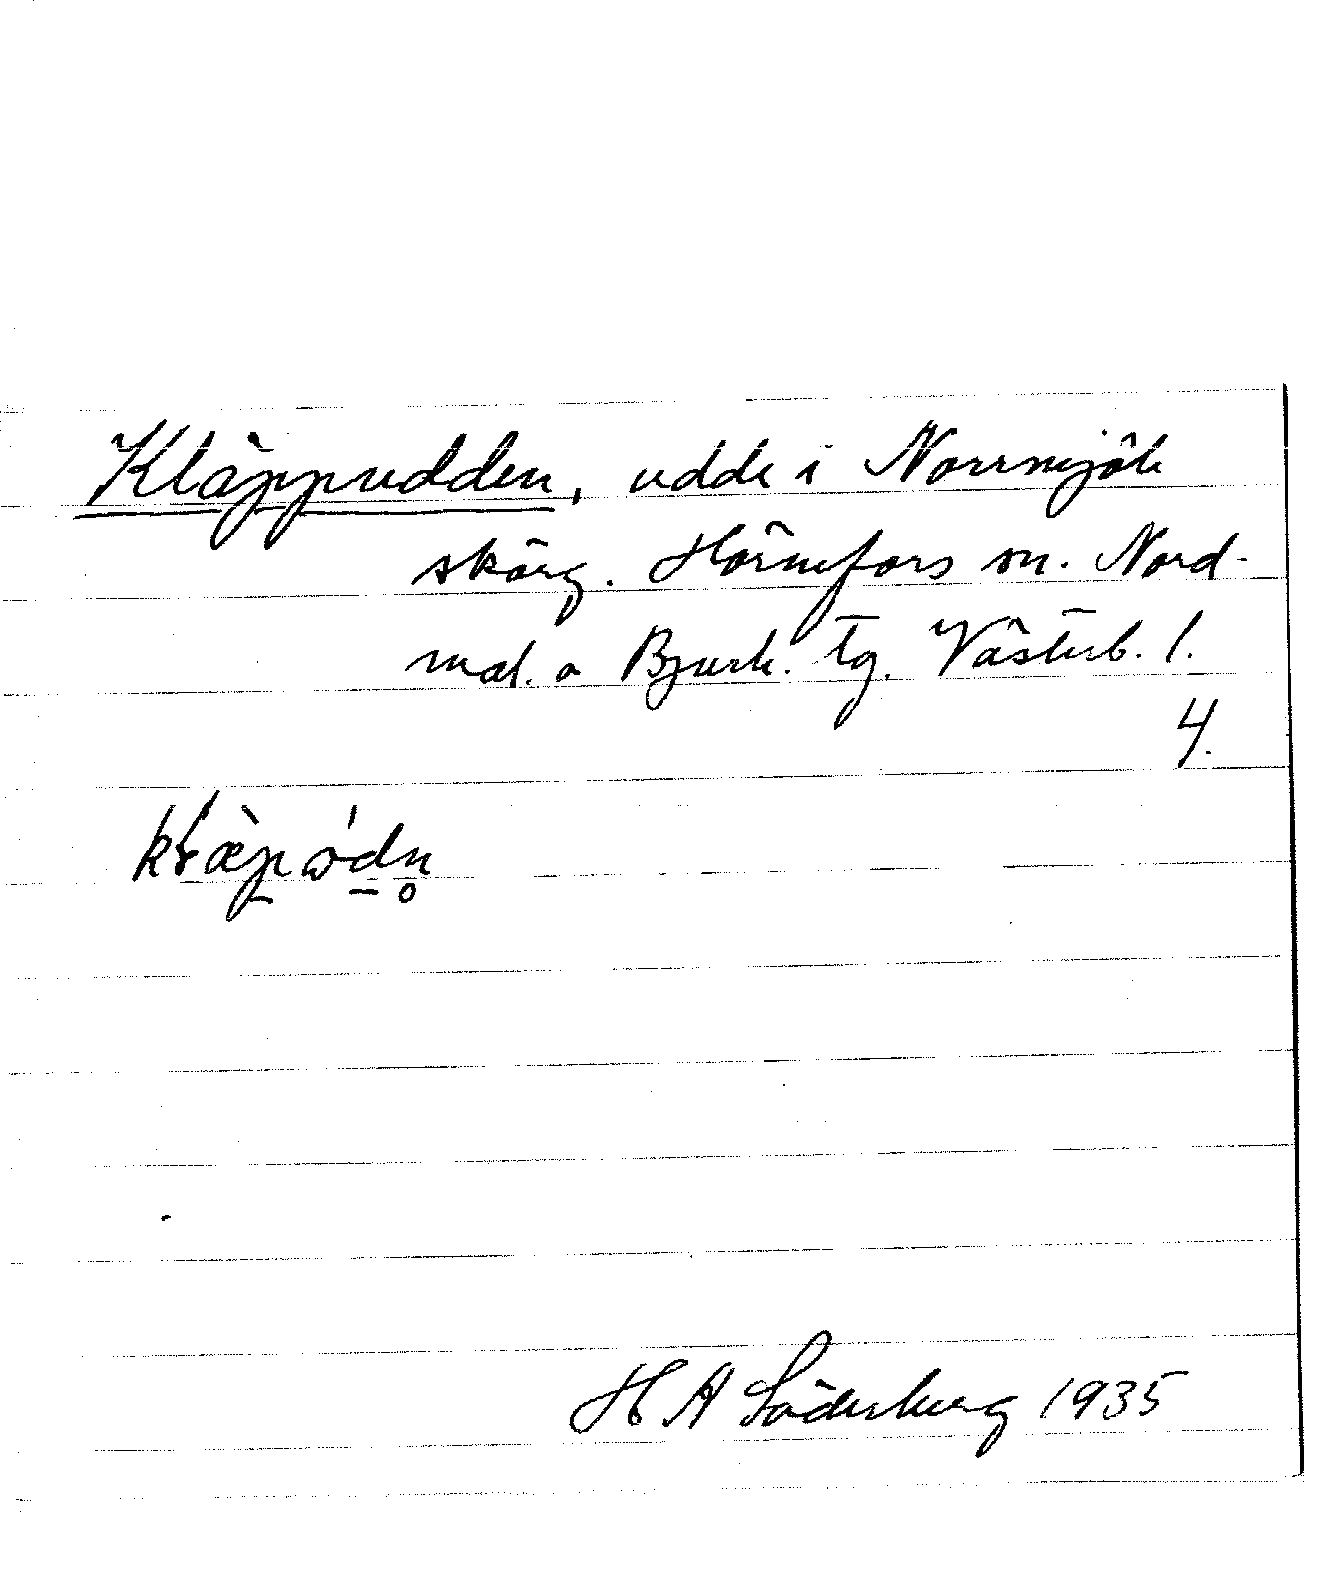 Kläppudden, udde i Norrmjöle
skärg. Hörnefors sn. Nord-
mal. o Bjurh. tg. Västerb. l.
4.
H A Söderberg 1935